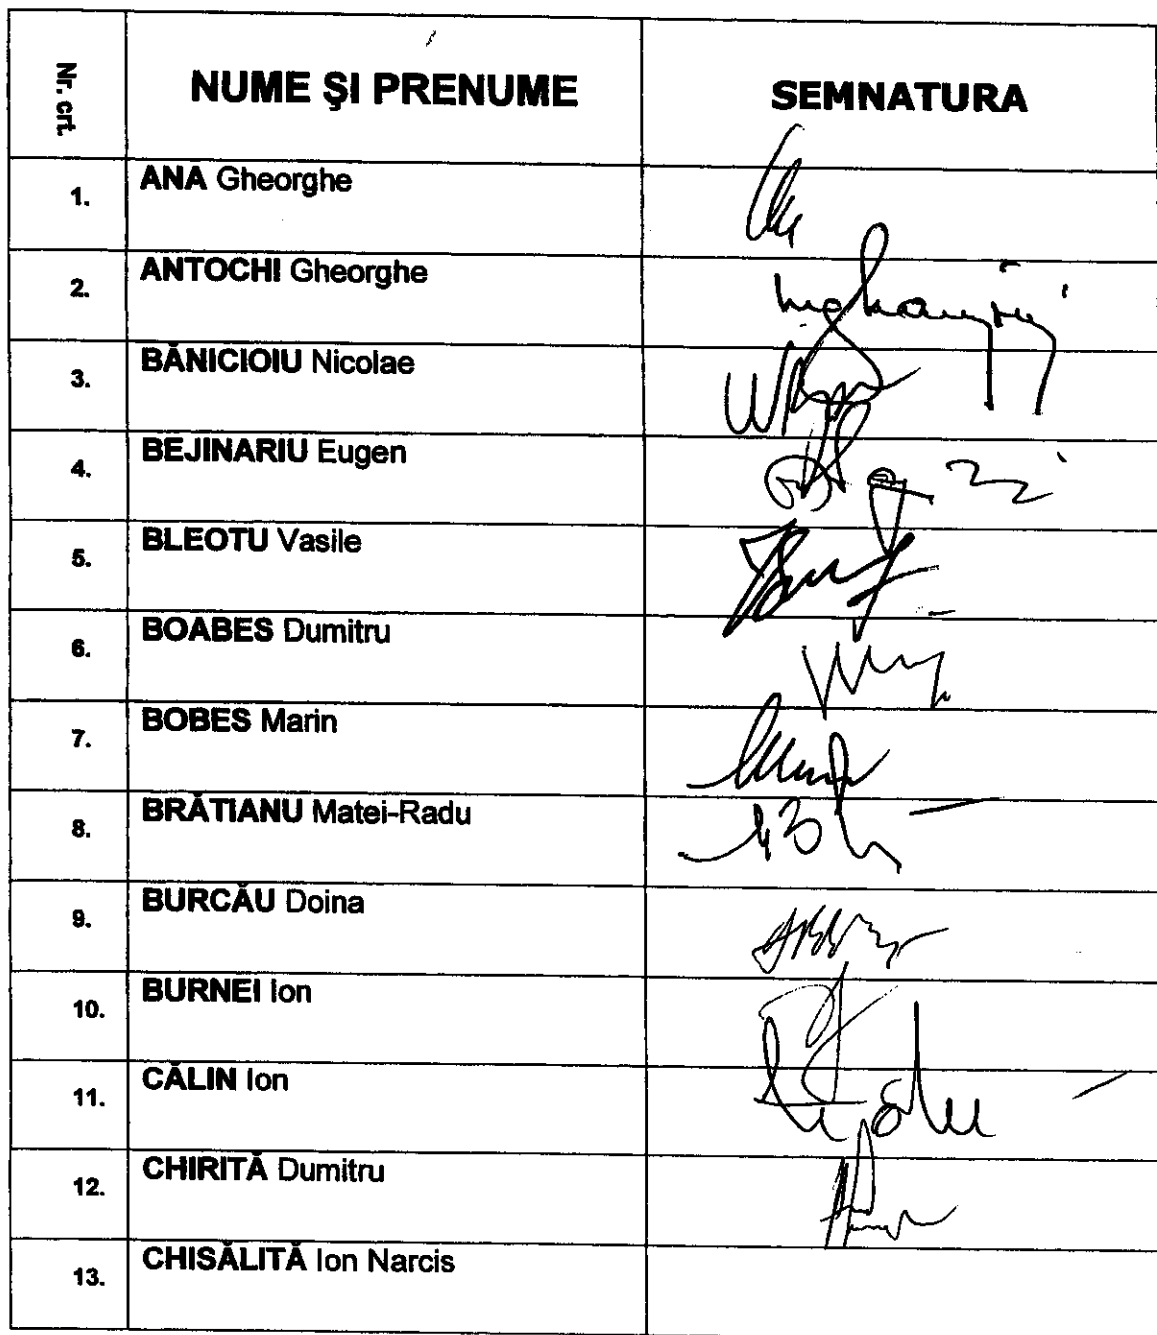 Nr. crt. NUME ŞI PRENUME SEMNATURA
1. ANA Gheorghe
2. ANTOCHI Gheorghe
3. BĂNICIOIU Nicolae
4. BEJINARIU Eugen
5. BLEOTU Vasile
6. BOABES Dumitru
7. BOBES Marin
8. BRĂTIANU Matei-Radu
9. BURCĂU Doina
10. BURNEI Ion
11. CĂLIN Ion
12. CHIRITĂ Dumitru
13. CHISĂLITĂ Ion Narcis